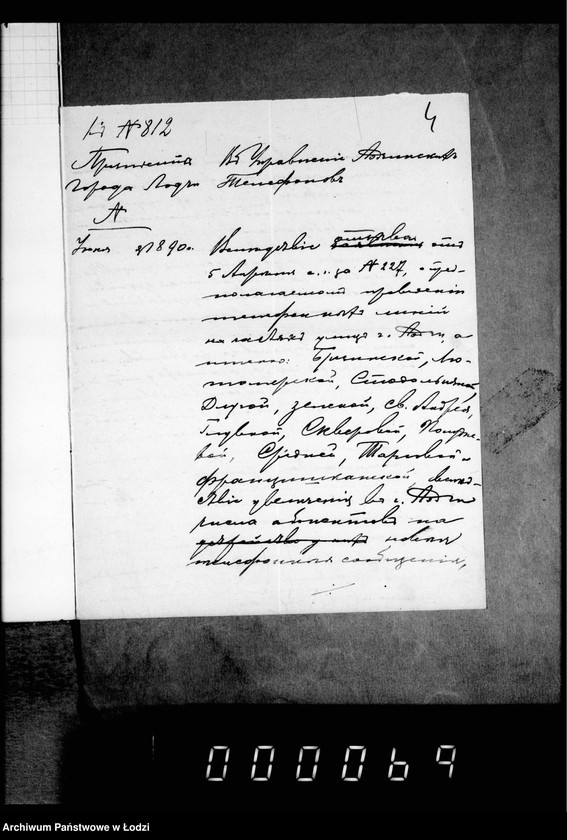 к № 812
4
Президентъ
города Лодзи
№
Июня 1890 г.
Въ Управленіе Лодзинскихъ
Телефоновъ
Вслѣдствіе отзыва отъ
5 Апрѣля с.г. за № 227, о пред-
полагаемомъ проведеніи
телефонныхъ линій
на улицъ г. Лодзи, а
именно: Бржезинской, Лю-
томерской, Стодольняной,
Долгой, Зеленой, Св. Андрея,
Глувной, Скверовой, Конфе-
вой, Средней, Тарговой и
Францишканской, вслѣд-
ствіе увеличенія въ г. Лодзи
числа абонентовъ на
новыя
телефонныя сообщенія,
000069
Archiwum Państwowe w Łodzi